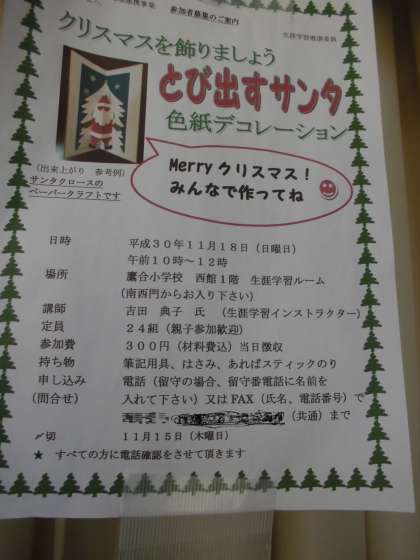 参加者募集のご案内
クリスマスを飾りましょう
とび出すサンタ
色紙デコレーション
(出来上がり 参考例)
サンタクロースの
ペーパークラフトです
Merry クリスマス!
みんなで作ってね
日時 平成30年11月18日(日曜日)
午前10時〜12時
場所 鷹合小学校 西館1階 生涯学習ルーム
(南西門からお入り下さい)
講師 吉田 典子 氏 (生涯学習インストラクター)
定員 24組(親子参加歓迎)
参加費 300円(材料費込)当日徴収
持ち物 筆記用具、はさみ、あればスティックのり
申し込み 電話(留守の場合、留守番電話に名前を
(問合せ) 入れて下さい)又はFAX(氏名、電話番号)で
(共通)まで
〆切 11月15日(木曜日)
★ すべての方に電話確認をさせて頂きます